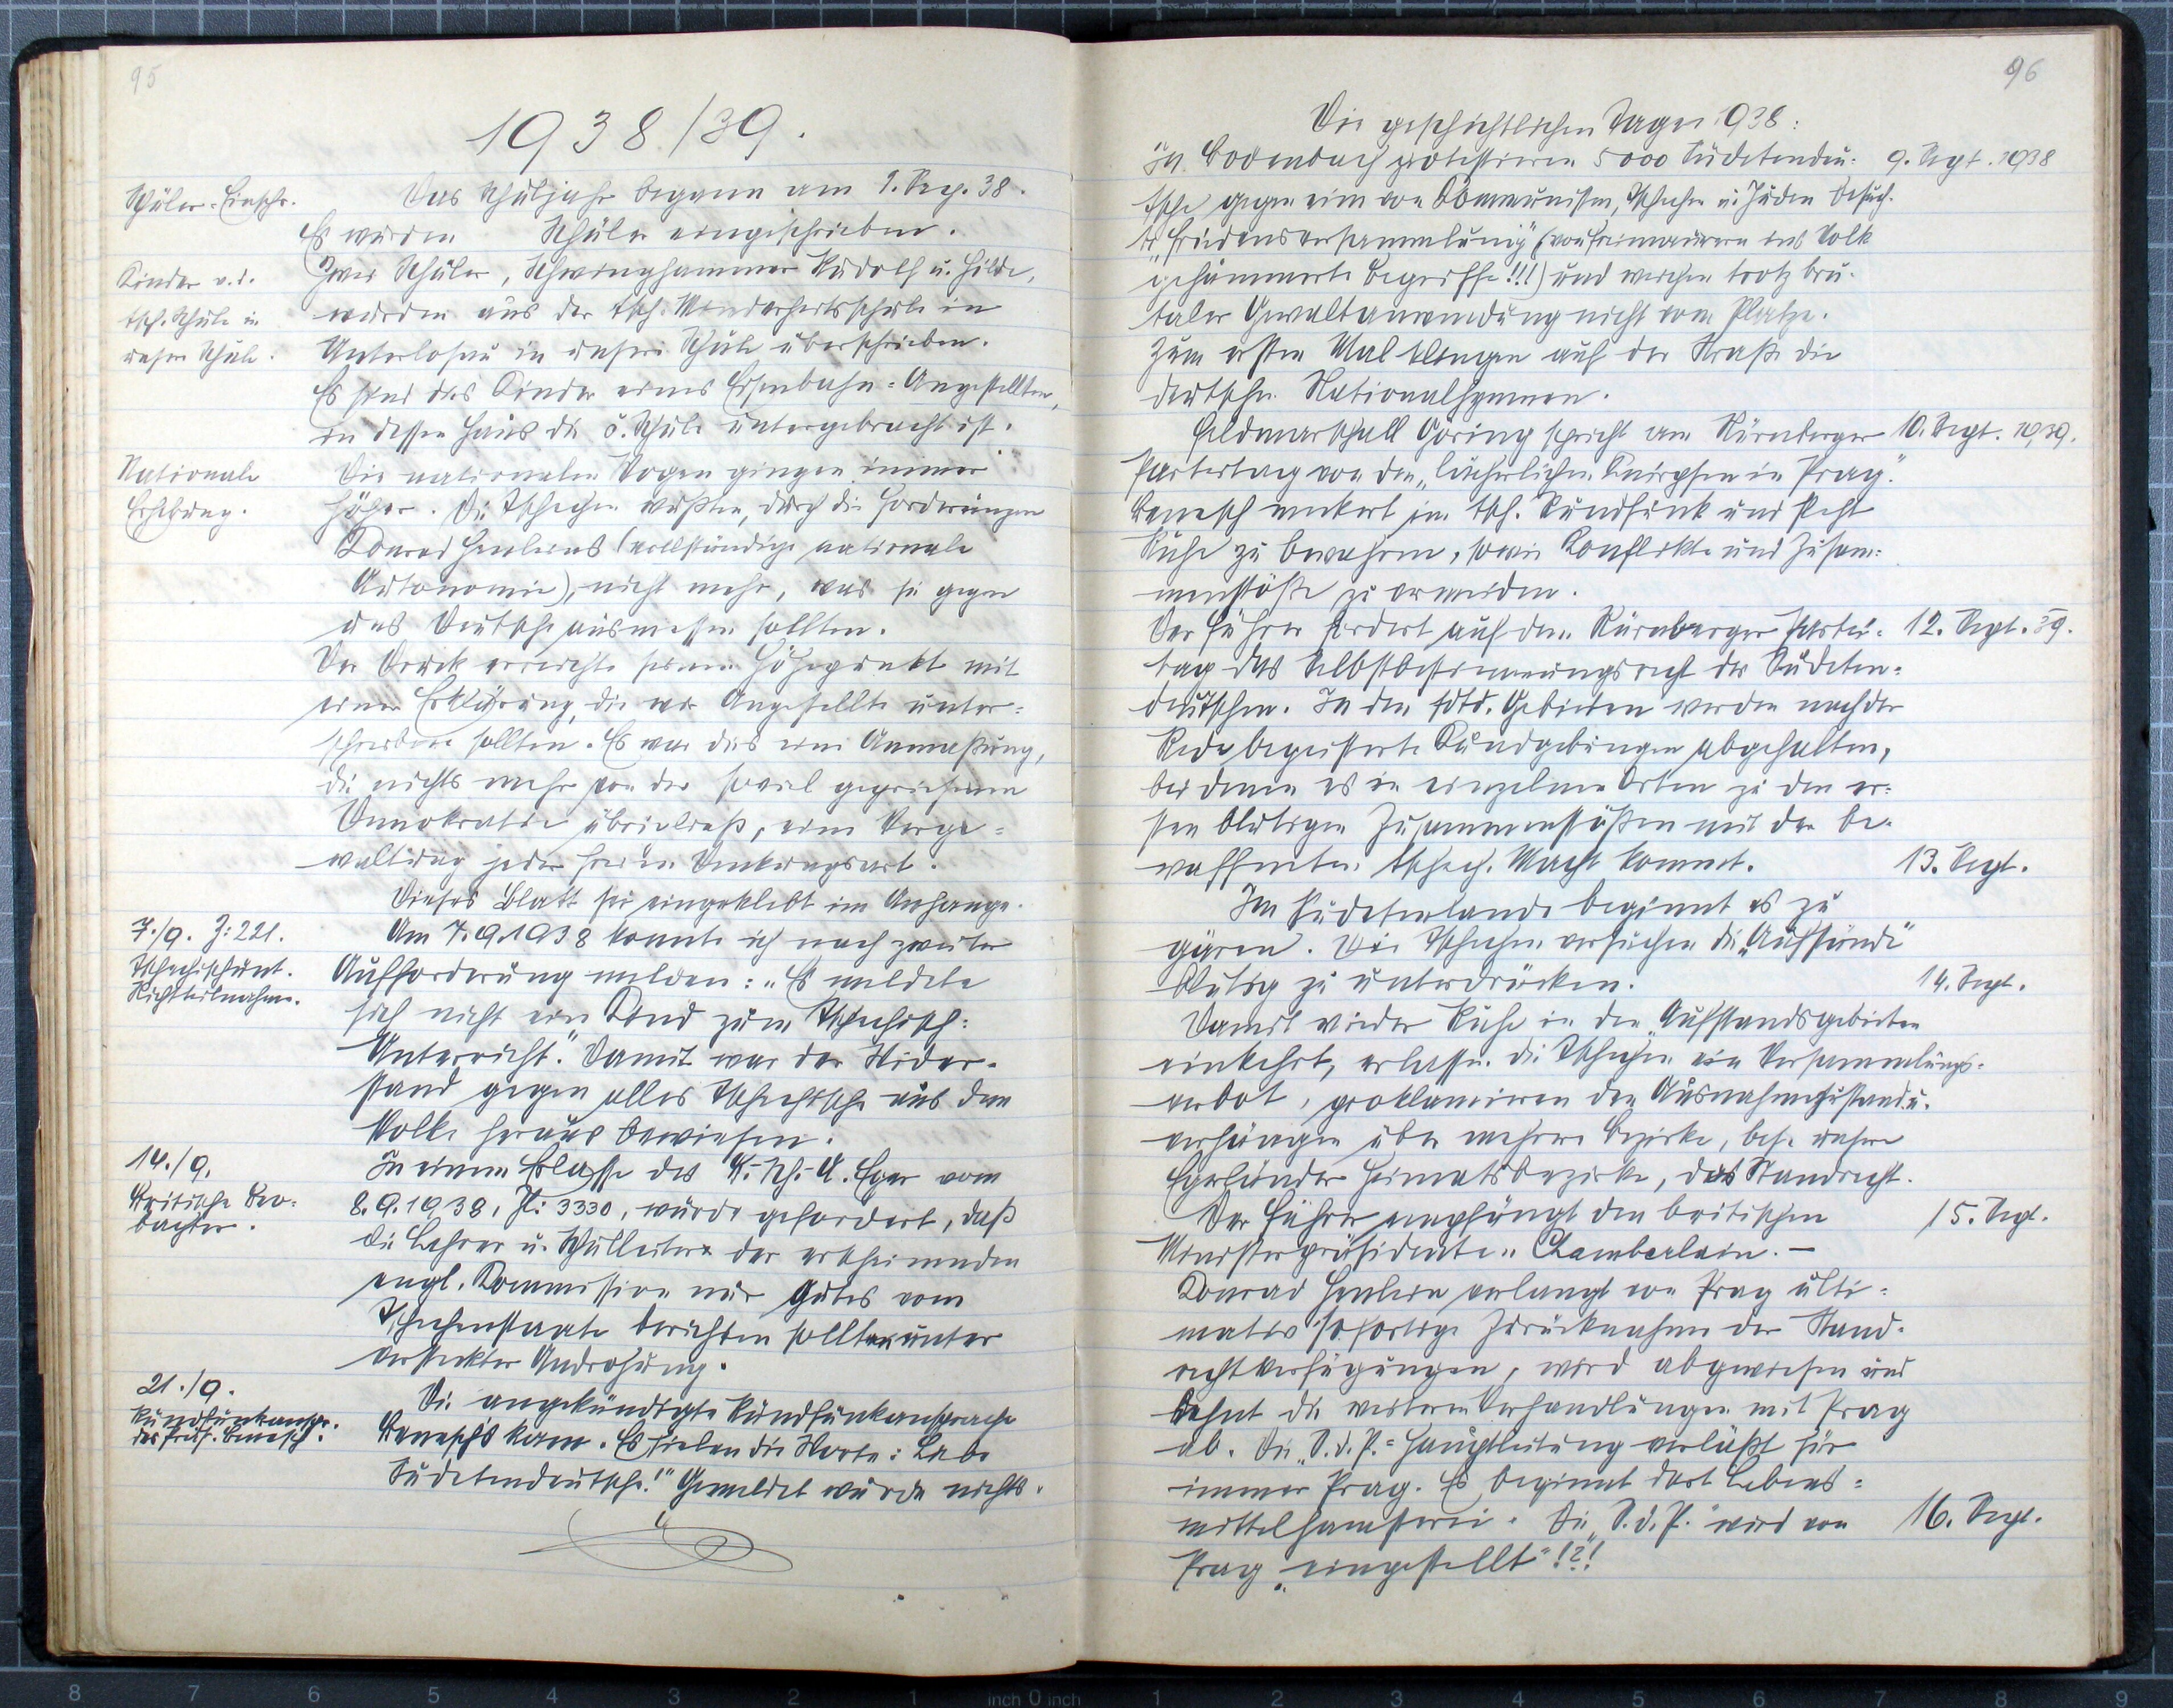 95
1938/39.
Schüler-Einschr.
Das Schuljahr begann am 1. Sep. 38.
Es wurden Schüler eingeschrieben.
Kinder v. d.
tsch. Schule in
unsere Schule.
Zwei Schüler, Schwinghammer Rudolf u. Hilde,
wurden aus der tsch. Minderheitsschule in
Unterlosau in unsere Schule überschrieben.
Es sind dies Kinder eines Eisenbahn-Angestellten,
in dessen Haus die ö. Schule untergebracht ist.
Nationale
Erhebung.
Die nationalen Wogen gingen immer
höher. Die Tschechen wußten, durch die Forderungen
Konrad Henleins (vollständige nationale
Autonomie), nicht mehr, was sie gegen
das Deutsche ausmessen sollten.
Der Druck erreichte seinen Höhepunkt mit
einer Erklärung, die wir Angestellte unter-
schreiben sollten. Es war dies eine Anmaßung,
die nichts mehr von der soviel gepriesenen
Demokratie übrigließ, eine Verge-
waltigung jeder freien Denkungsart.
Dieses Blatt sei eingeklebt im Anhange.
7./9. Z: 221.
Tschechischunt.
Nichtteilnahme.
Am 7.9.1938 konnte ich nach zweiter
Aufforderung melden: „Es meldete
sich nicht ein Kind zum Tschechisch-
Unterricht." Damit war der Wider-
stand gegen alles Tschechische aus dem
Volke heraus bewiesen.
14./9.
Britische Beo-
bachter.
In einem Erlasse des B.-Sch.-A. Eger vom
8.9.1938, Zl: 3330, wurde gefordert, daß
die Lehrer u. Schulleiter der erscheinenden
engl. Kommission nur Gutes vom
Tschechenstaate berichten sollten unter
versteckter Androhung.
21./9.
Rundfunkanspr.
des Präs. Benesch.
Die angekündigte Rundfunkansprache
Benesch's kam. Es fielen die Worte: Liebe
Sudetendeutsche!" Gemeldet wurde nichts.
96
Die geschichtlichen Tage 1938:
In Bodenbach protestieren 5000 Sudetendeu- 9. Sept. 1938
tsche gegen eine von Kommunisten, Tschechen u. Juden besuch-
te „Friedensversammlung" (von Freimaurern ins Volk
gehämmerte Begriffe!!!) und weichen trotz bru-
taler Gewaltanwendung nicht vom Platze.
Zum ersten Mal klingen auf der Straße die
deutschen Nationalhymnen.
Feldmarschall Göring spricht am Nürnberger 10. Sept. 1939.
Parteitag von den „lächerlichen Knirpsen in Prag".
Benesch meckert im tsch. Rundfunk und fleht
Ruhe zu bewahren, sowie Konflikte und Zusam-
menstöße zu vermeiden.
Der Führer fordert auf dem Nürnberger Partei- 12. Sept. 39.
tag das Selbstbestimmungsrecht der Sudeten-
deutschen. In den sdtd. Gebieten werden nach der
Rede begeisterte Kundgebungen abgehalten,
bei denen es in einzelnen Orten zu den er-
sten blutigen Zusammenstößen mit der be-
waffneten tschech. Macht kommt. 13. Sept.
Im Sudetenlande beginnt es zu
gären. Die Tschechen versuchen die „Aufstände"
blutig zu unterdrücken. 14. Sept.
Damit wieder Ruhe in den „Aufstandsgebieten
einkehrt, erlassen die Tschechen ein Versammlungs-
verbot, proklamieren den Ausnahmezustand u.
verhängen über mehrere Bezirke, bes. unsere
Egerländer Heimatsbezirke, das Standrecht.
Der Führer empfängt den britischen 15. Sept.
Ministerpräsidenten Chamberlain. –
Konrad Henlein verlangt von Prag ulti-
mativ sofortige Zurücknahme der Stand-
rechtverfügungen, wird abgewiesen und
lehnt die weiteren Verhandlungen mit Prag
ab. Die „S.d.P.-Hauptleitung verläßt für
immer Prag. Es beginnt dort Lebens-
mittelhamsterei. Die „S.d.P." wird von 16. Sept.
Prag „eingestellt"!?!
8 7 6 5 4 3 2 1 inch 0 inch 1 2 3 4 5 6 7 8 9